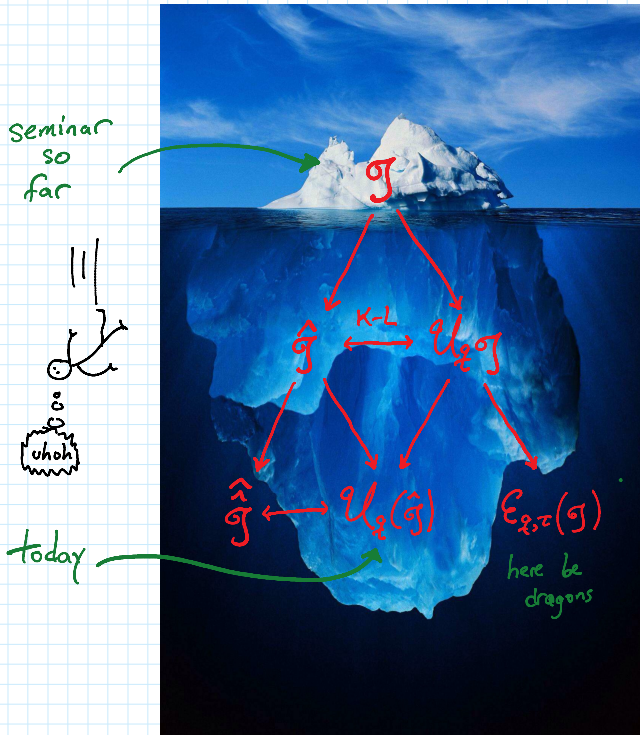 seminar
so
far
𝔤
K-L
𝔤̂ ↔ 𝒰_q 𝔤
uhoh
𝔤̂̂ ↔ 𝒰_q(𝔤̂) ℰ_{q,τ}(𝔤)
today
here be
dragons